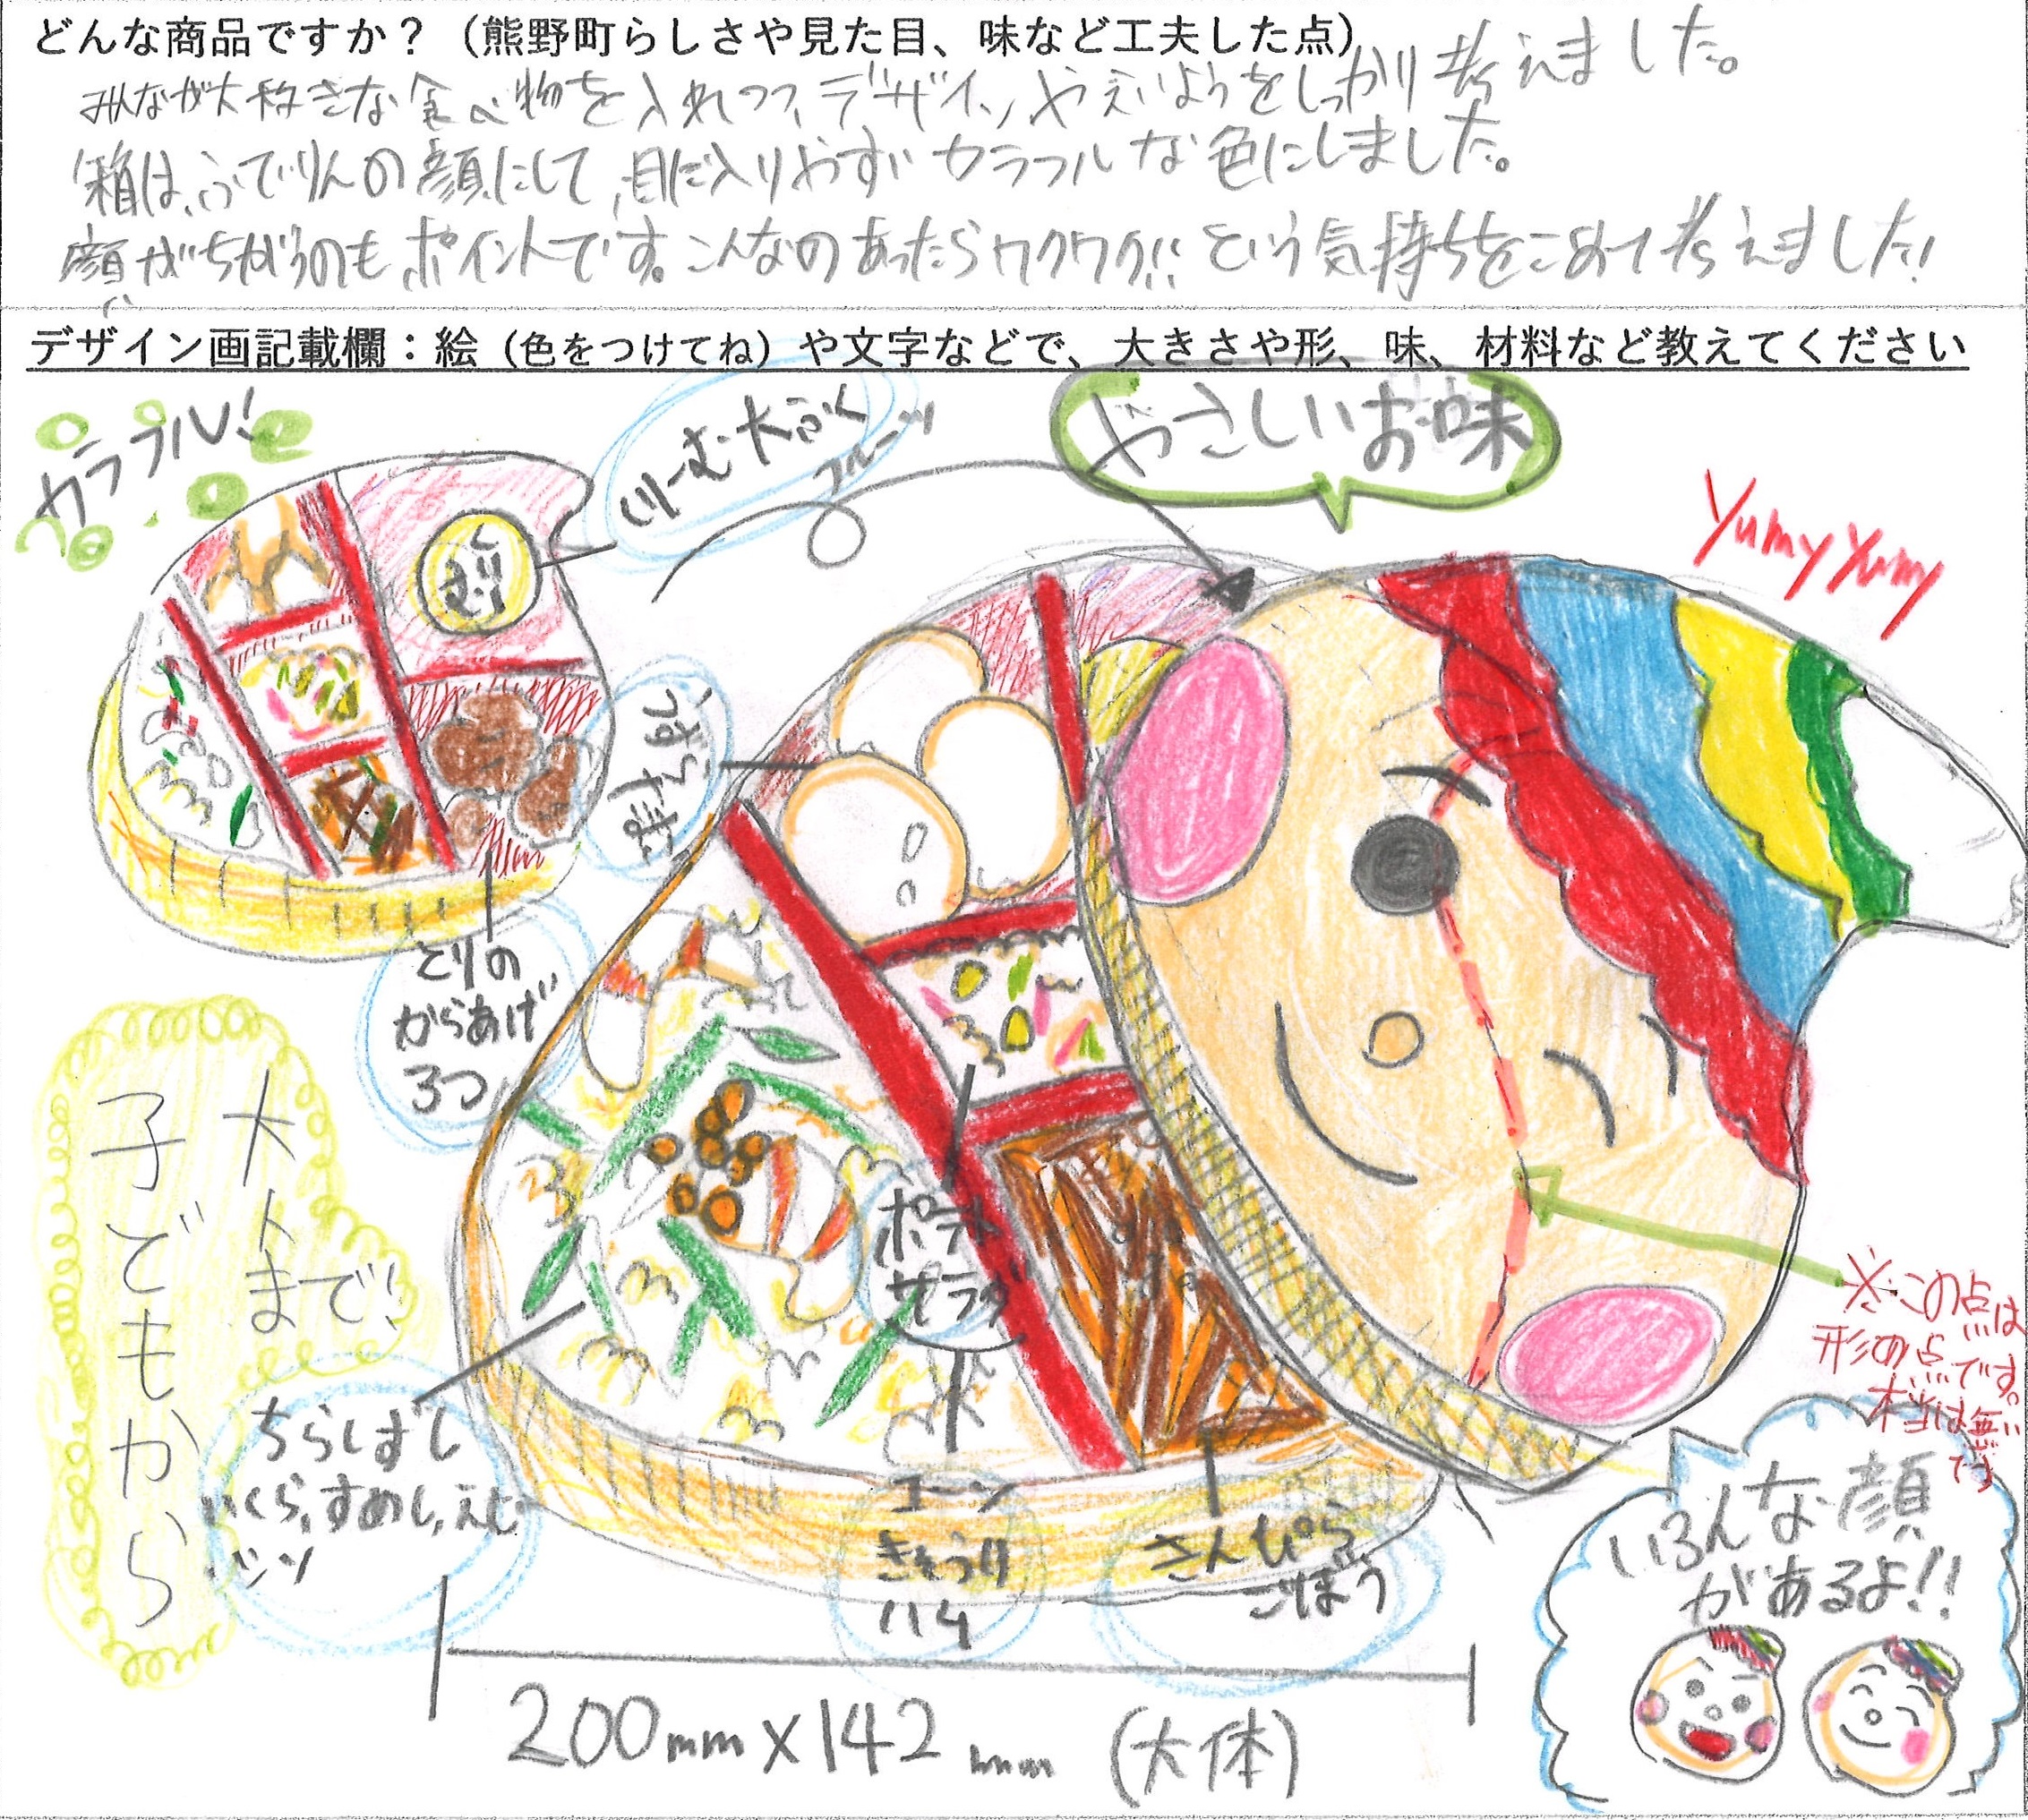 どんな商品ですか？（熊野町らしさや見た目、味など工夫した点）
みんなが大好きな食べ物を入れつつ、デザインやえいようをしっかり考えました。
箱は、ふでりんの顔にして、目に入りやすいカラフルな色にしました。
顔がちがうのもポイントです。こんなのあったらワクワク!!という気持ちをこめて考えました!
デザイン画記載欄：絵（色をつけてね）や文字などで、大きさや形、味、材料など教えてください
カラフル!
くりーむ大ふく
フルーツ
やさしいお味
Yumy Yumy
くりむ
うずらたまご
とりの
からあげ
3つ
子どもから
大人まで!
ポテト
サラダ
※この点は
形の点です。
本当は無い
です
ちらしずし
いくら,すめし,えび
シソ
コーン
きゅうり
ハム
きんぴら
ごぼう
いろんな顔
があるよ!!
200mm×142mm (大体)